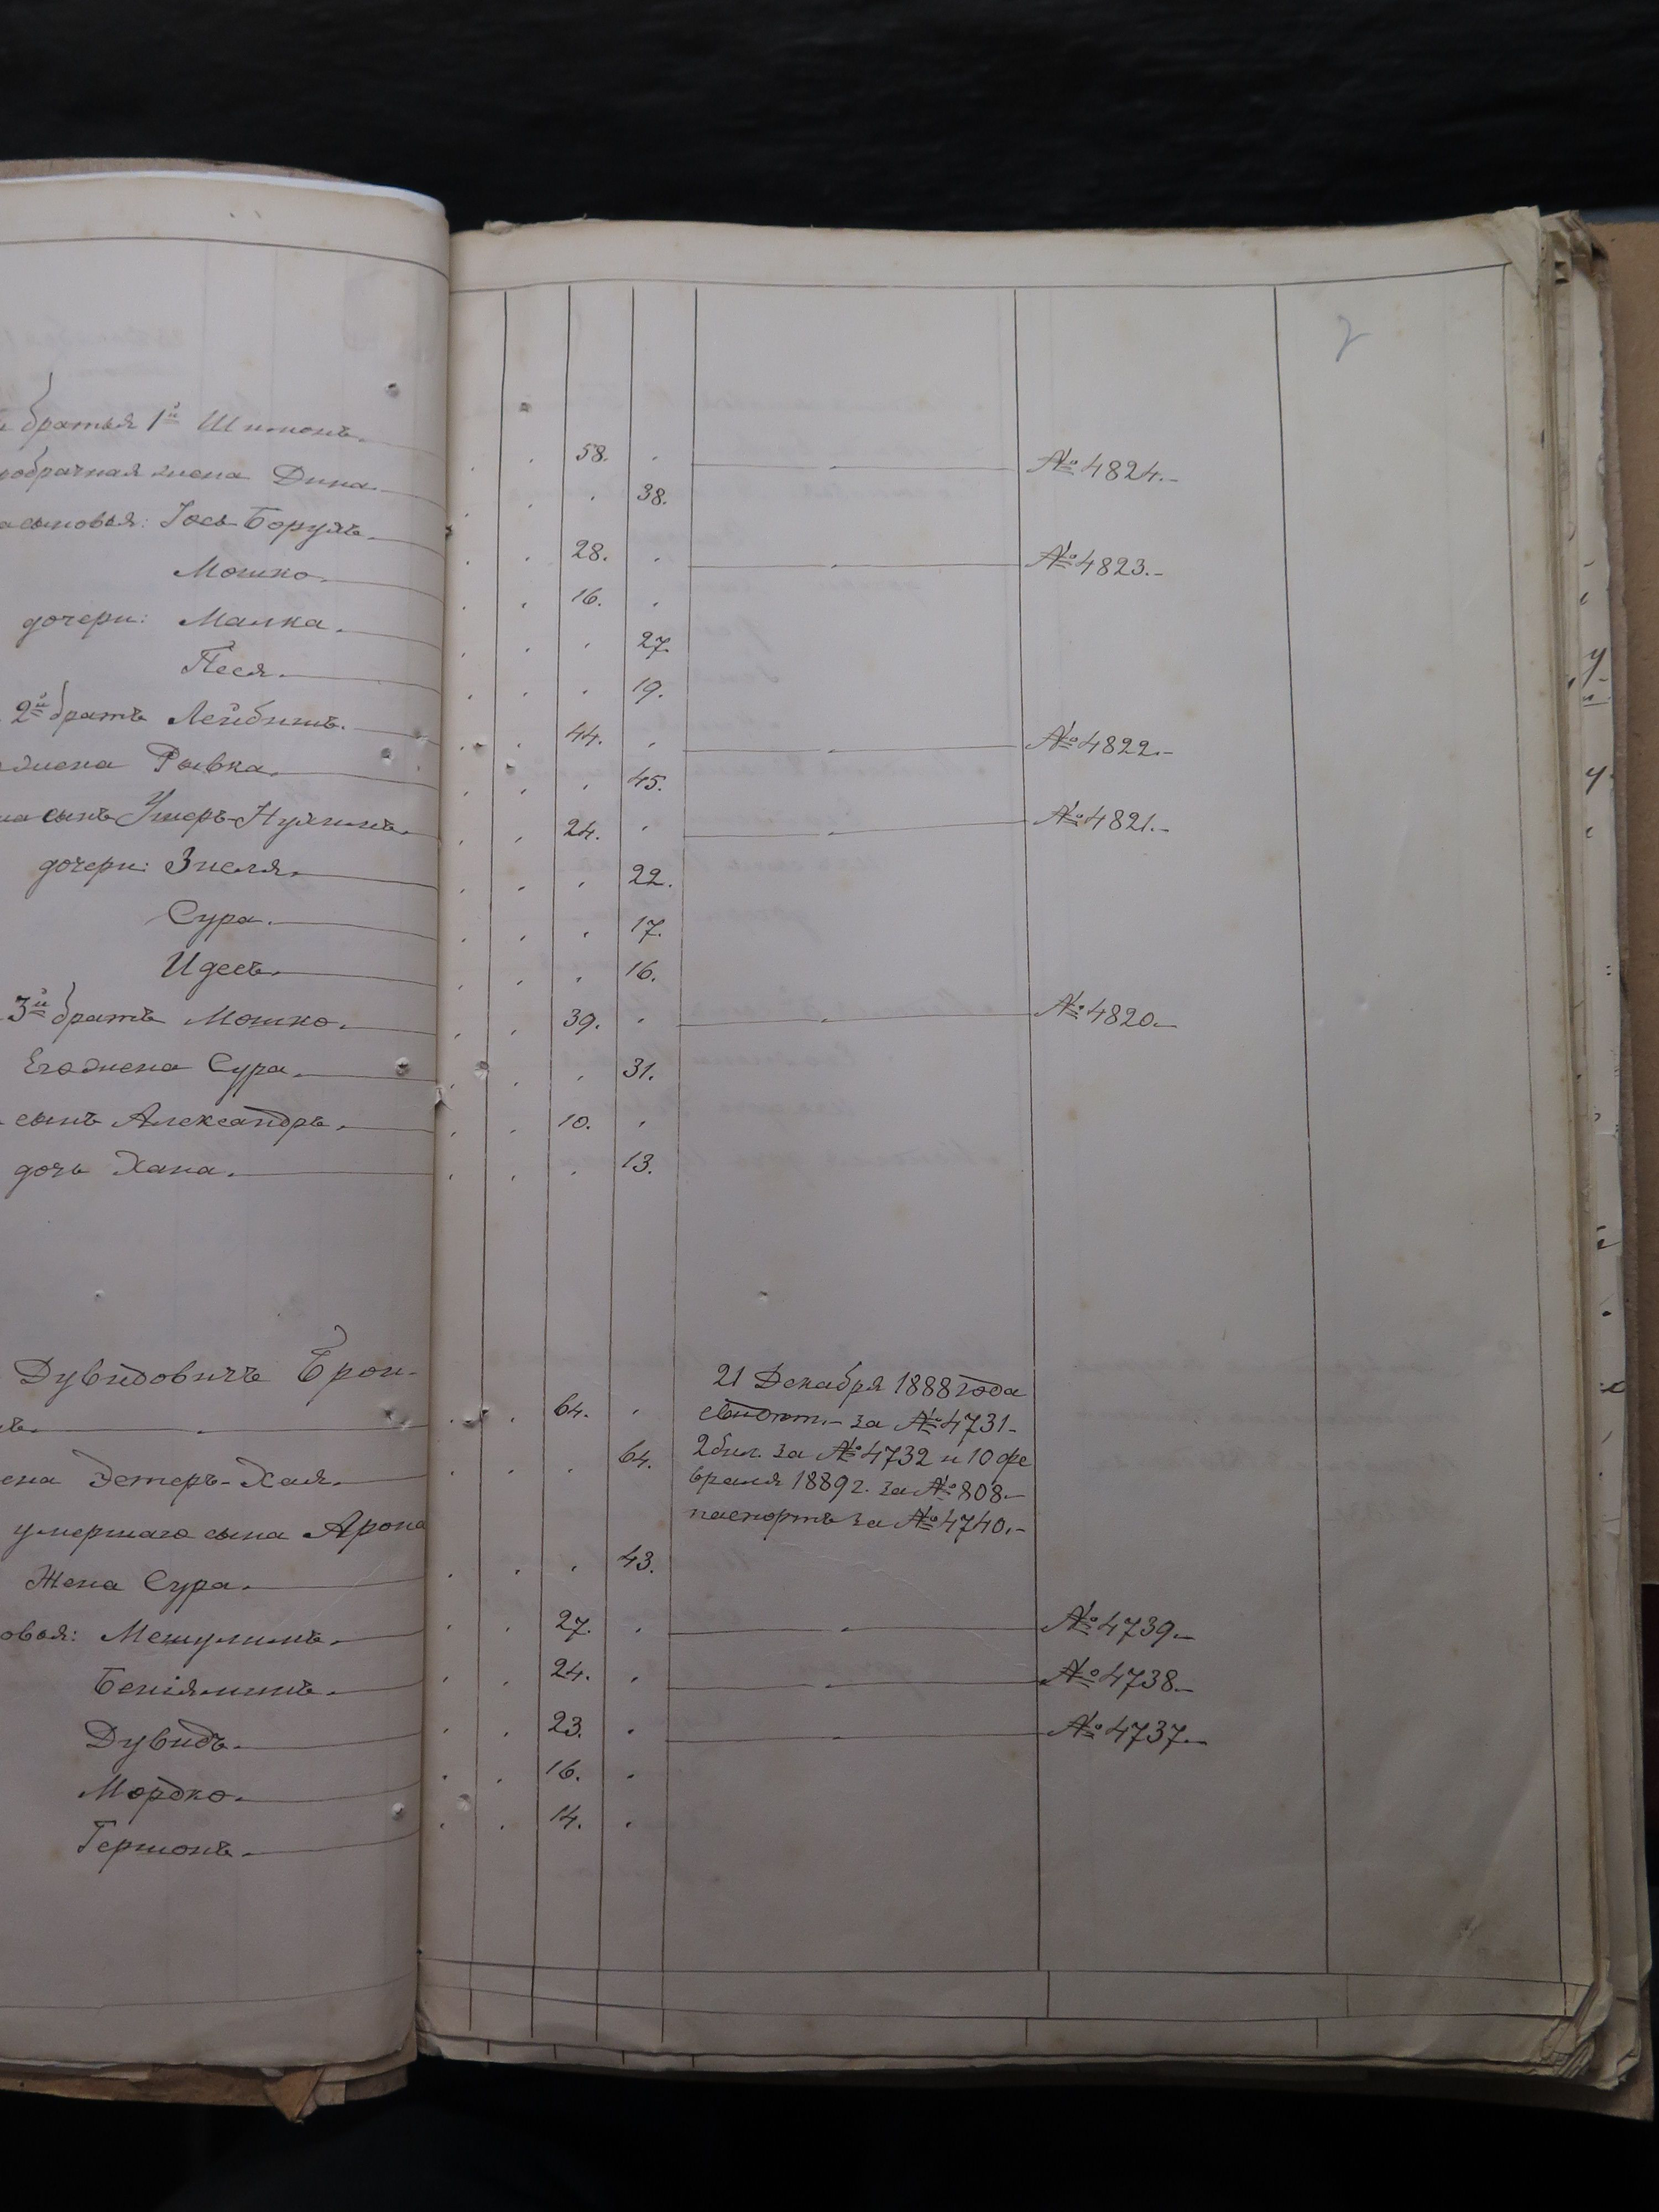 7
братья 1й Шимонъ. 58. №4824.
жена Дина. 38.
сыновья: Іось-Борухъ. 28. №4823.
Мошко. 16.
дочери: Малка. 27.
Песя. 19.
2й братъ Лейбишъ. 44. №4822.
жена Рывка. 45.
сынъ Умеръ-Нухимъ. 24. №4821.
дочери: Зисля. 22.
Сура. 17.
Идесъ. 16.
3й братъ Мошко. 39. №4820.
Его жена Сура. 31.
сынъ Александръ. 10.
дочь Хана. 13.
Дувидовичъ Брон-
64.
21 Декабря 1888 года
свидѣт. за №4731
Эстеръ-Хая. 64.
2 бил. за №4732 и 10 фе
враля 1889 г. за №808.
умершаго сына Арона
паспортъ за №4740.
Жена Сура. 43.
Мешулимъ. 27. №4739.
Беніяминъ. 24. №4738.
Дувидъ. 23. №4737.
Мордко. 16.
Гершонъ. 14.